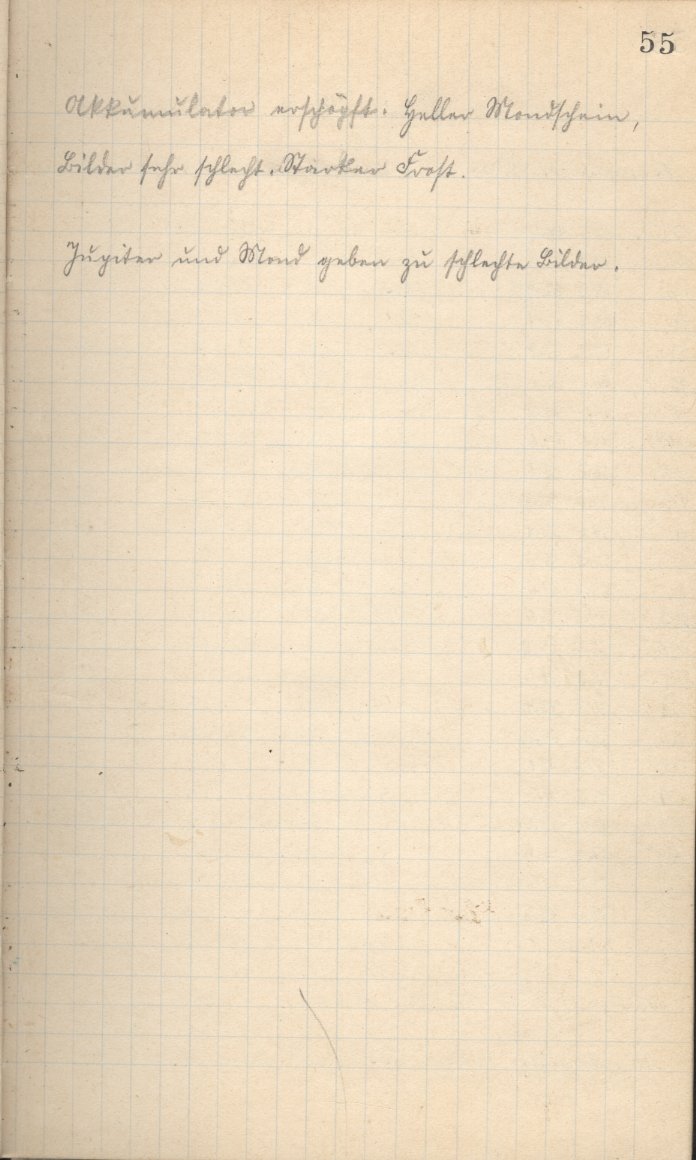 55
Akkumulator erschöpft. Heller Mondschein,
Bilder sehr schlecht. Starker Frost.
Jupiter und Mond geben zu schlechte Bilder.